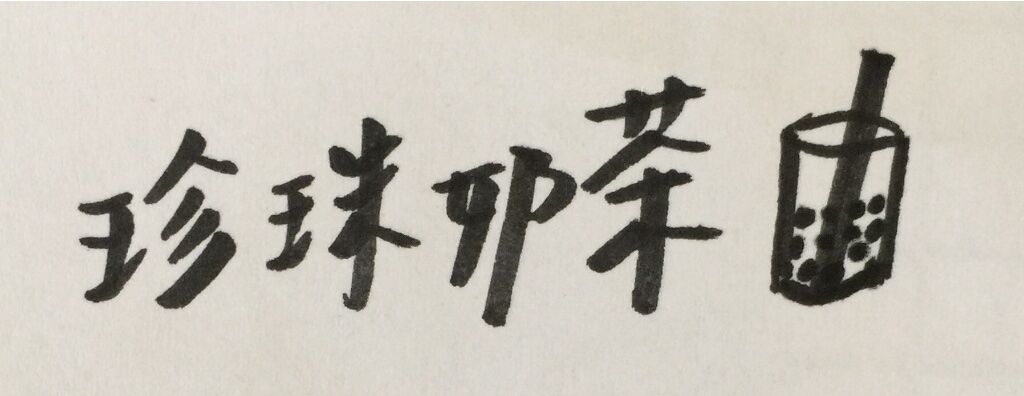 珍珠奶茶